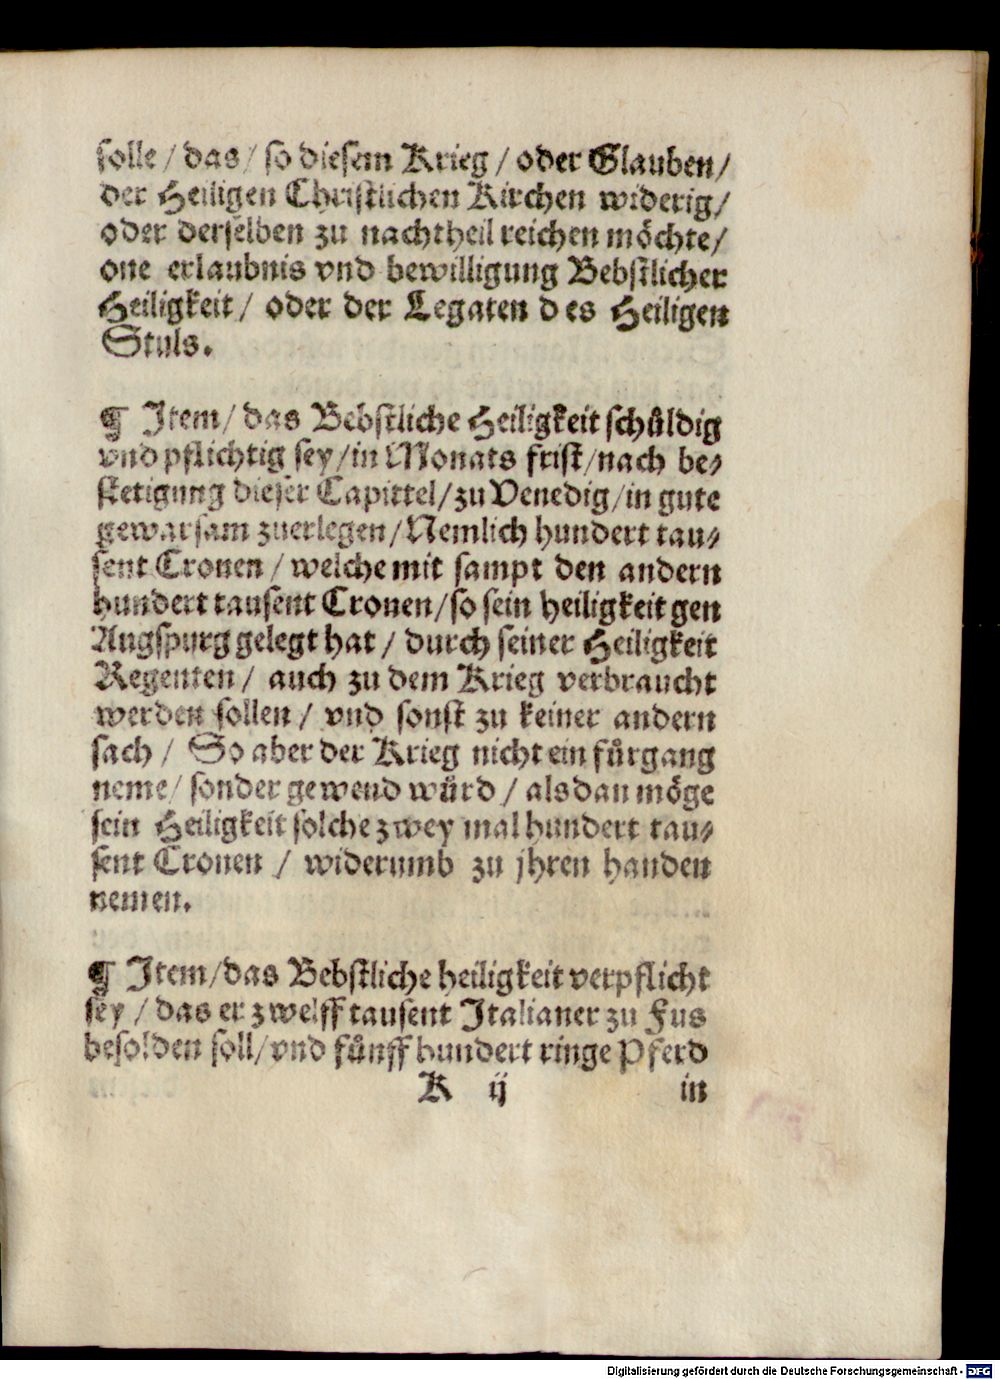 solle / das / so diesem Krieg / oder Glauben /
der Heiligen Christlichen Kirchen widerig /
oder derselben zu nachtheil reichen möchte /
one erlaubnis vnd bewilligung Bebstlicher
Heiligkeit / oder der Legaten des Heiligen
Stuls.
¶ Item / das Bebstliche Heiligkeit schůldig
vnd pflichtig sey / in Monats frist / nach be⸗
stetigung dieser Capittel / zu Venedig / in gute
gewarsam zuerlegen / Nemlich hundert tau⸗
sent Cronen / welche mit sampt den andern
hundert tausent Cronen / so sein heiligkeit gen
Augspurg gelegt hat / durch seiner Heiligkeit
Regenten / auch zu dem Krieg verbraucht
werden sollen / vnd sonst zu keiner andern
sach / So aber der Krieg nicht ein fůrgang
neme / sonder gewend wůrd / alsdan möge
sein Heiligkeit solche zwey mal hundert tau⸗
sent Cronen / widerumb zu jhren handen
nemen.
¶ Item / das Bebstliche heiligkeit verpflicht
sey / das er zwelff tausent Italianer zu Fus
besolden soll / vnd fůnff hundert ringe Pferd
K ij in
Digitalisierung gefördert durch die Deutsche Forschungsgemeinschaft - DFG